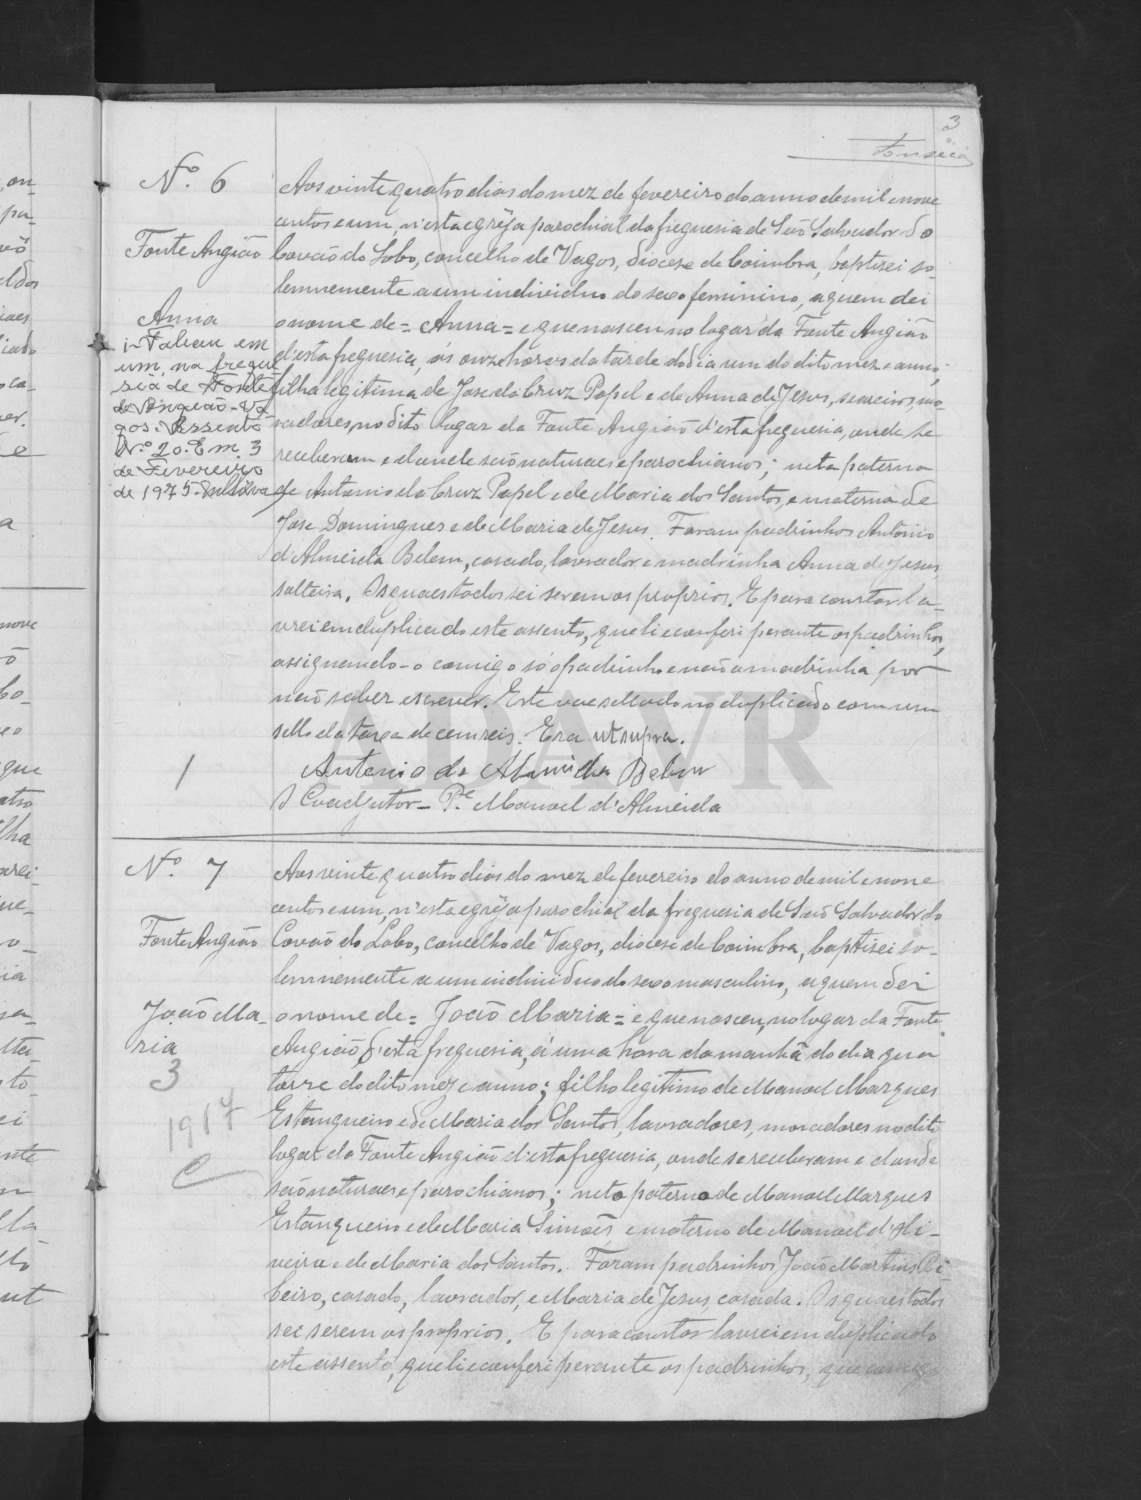 3
Fonseca
Nº 6
Fonte Angião
Anna
1-Faleceu em
um, na fregue
sia de Fonte
de Angeão-Va
gos. Assento
Nº 20. Em 3
de Fevereiro
de 1975.
Aos vinte quatro dias do mez de fevereiro do anno de mil e nove
centos e um, n'esta egreja parochial da freguesia de São Salvador do
Covão do Lobo, concelho de Vagos, diocese de Coimbra, baptisei so-
lemnemente a um individuo do sexo feminino, a quem dei
o nome de = Anna = e que nasceu no logar da Fonte Angião
d'esta freguesia, ás onze horas da tarde do dia um do dito mez e anno;
filha legitima de Jose da Cruz Papel e de Anna de Jesus, seareiros, mo-
radores, no dito logar da Fonte Angião d'esta freguesia, onde se
receberam e d'onde são naturaes e parochianos; neta paterna
de Antonio da Cruz Papel e de Maria dos Santos, e materna de
Jose Domingues e de Maria de Jesus. Foram padrinhos Antonio
d'Almeida Belem, casado, lavrador e madrinha Anna de Jesus,
solteira. Os quaes todos sei serem os proprios. E para constar la-
vrei em duplicado este assento, que li e conferi perante os padrinhos,
assignando-o comigo só o padrinho e não a madrinha por
não saber escrever. Este vae sellado no duplicado com um
sello da taxa de cem reis. Era ut supra.
Antonio de Almeida Belem
O Coadjutor - P.e Manoel d'Almeida
1
ADAVR
Nº 7
Fonte Angião
João Ma-
ria
3
1917
C
Aos vinte quatro dias do mez de fevereiro do anno de mil e nove
centos e um, n'esta egreja parochial da freguesia de São Salvador do
Covão do Lobo, concelho de Vagos, diocese de Coimbra, baptisei so-
lemnemente a um individuo do sexo masculino, a quem dei
o nome de = João Maria = e que nasceu, no logar da Fonte
Angião d'esta freguesia, á uma hora da manhã do dia qua
torze do dito mez e anno; filho legitimo de Manoel Marques
Estanqueiro e de Maria dos Santos, lavradores, moradores no dito
logar da Fonte Angião d'esta freguesia, onde se receberam e d'onde
são naturaes e parochianos; neto paterno de Manoel Marques
Estanqueiro e de Maria Simões e materno de Manoel d'Oli-
veira e de Maria dos Santos. Foram padrinhos João Martins Ri
beiro, casado, lavrador, e Maria de Jesus, casada. Os quaes todos
sei serem os proprios. E para constar lavrei em duplicado
este assento, que li e conferi perante os padrinhos, que comigo